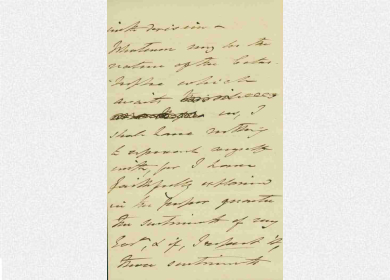 Whatever may be the
nature of the
which
await us, I
shall have nothing
to reproach myself
with, for I have
faithfully explained
in the proper quarter
the sentiments of my
& if, I expect it,
these sentiments